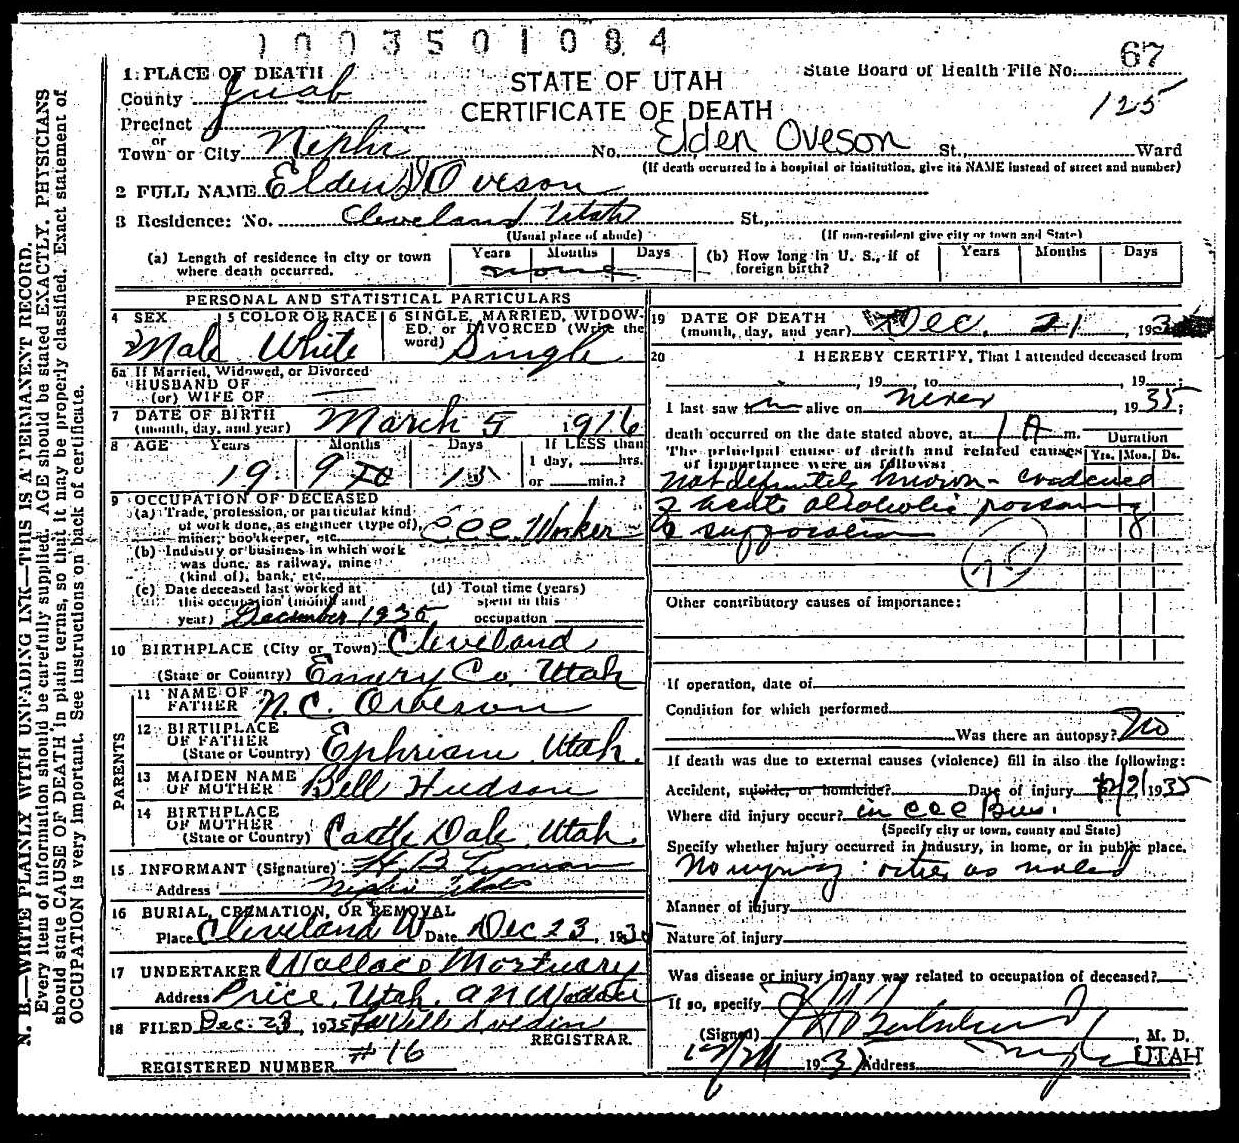 1003501084
67
State Board of Health File No.
125
STATE OF UTAH
CERTIFICATE OF DEATH
1: PLACE OF DEATH
County Juab
Precinct
or
Town or City Nephi No. Elden Oveson St., Ward
(If death occurred in a hospital or institution, give its NAME instead of street and number)
2 FULL NAME Elden Oveson
3 Residence: No. Cleveland Utah St.,
(Usual place of abode) (If non-resident give city or town and State)
(a) Length of residence in city or town where death occurred. Years Months Days none
(b) How long in U. S., if of foreign birth? Years Months Days
PERSONAL AND STATISTICAL PARTICULARS
4 SEX Male
5 COLOR OR RACE White
6 SINGLE, MARRIED, WIDOWED, or DIVORCED (Write the word) Single
6a If Married, Widowed, or Divorced
HUSBAND OF
(or) WIFE OF
7 DATE OF BIRTH
(month, day, and year) March 5 1916
8 AGE Years 19 Months 9 Days 15 If LESS than 1 day, hrs. or min.?
9 OCCUPATION OF DECEASED
(a) Trade, profession, or particular kind of work done, as engineer (type of), miner, bookkeeper, etc. CCC. Worker
(b) Industry or business in which work was done, as railway, mine (kind of), bank, etc.
(c) Date deceased last worked at this occupation (month and year) December 1935
(d) Total time (years) spent in this occupation
10 BIRTHPLACE (City or Town) Cleveland
(State or Country) Emery Co. Utah
PARENTS
11 NAME OF FATHER N. C. Oveson
12 BIRTHPLACE OF FATHER
(State or Country) Ephriam Utah.
13 MAIDEN NAME OF MOTHER Bell Hudson
14 BIRTHPLACE OF MOTHER
(State or Country) Castle Dale, Utah.
15 INFORMANT (Signature)
Address Nephi Utah
16 BURIAL, CREMATION, OR REMOVAL
Place Cleveland U Date Dec 23, 1935
17 UNDERTAKER Wallace Mortuary
Address Price, Utah.
18 FILED Dec. 23, 1935
REGISTRAR.
REGISTERED NUMBER #16
19 DATE OF DEATH
(month, day, and year) Dec. 21, 193
20 I HEREBY CERTIFY, That I attended deceased from
, 19 , to , 19 ;
I last saw him alive on never, 1935;
death occurred on the date stated above, at 1 A m.
The principal cause of death and related causes of importance were as follows:
Duration
Yrs. Mos. Ds.
Not definitely known - evidence
acute alcoholic poisoning
75
Other contributory causes of importance:
If operation, date of
Condition for which performed
Was there an autopsy? No
If death was due to external causes (violence) fill in also the following:
Accident, suicide, or homicide? Date of injury 1935
Where did injury occur? in CCC Bus.
(Specify city or town, county and State)
Specify whether injury occurred in industry, in home, or in public place.
No injury other as noted
Manner of injury
Nature of injury
Was disease or injury in any way related to occupation of deceased?
If so, specify
(Signed) , M. D.
193 Address UTAH
N. B.—WRITE PLAINLY WITH UNFADING INK—THIS IS A PERMANENT RECORD.
Every item of information should be carefully supplied. AGE should be stated EXACTLY. PHYSICIANS
should state CAUSE OF DEATH in plain terms, so that it may be properly classified. Exact statement of
OCCUPATION is very important. See instructions on back of certificate.